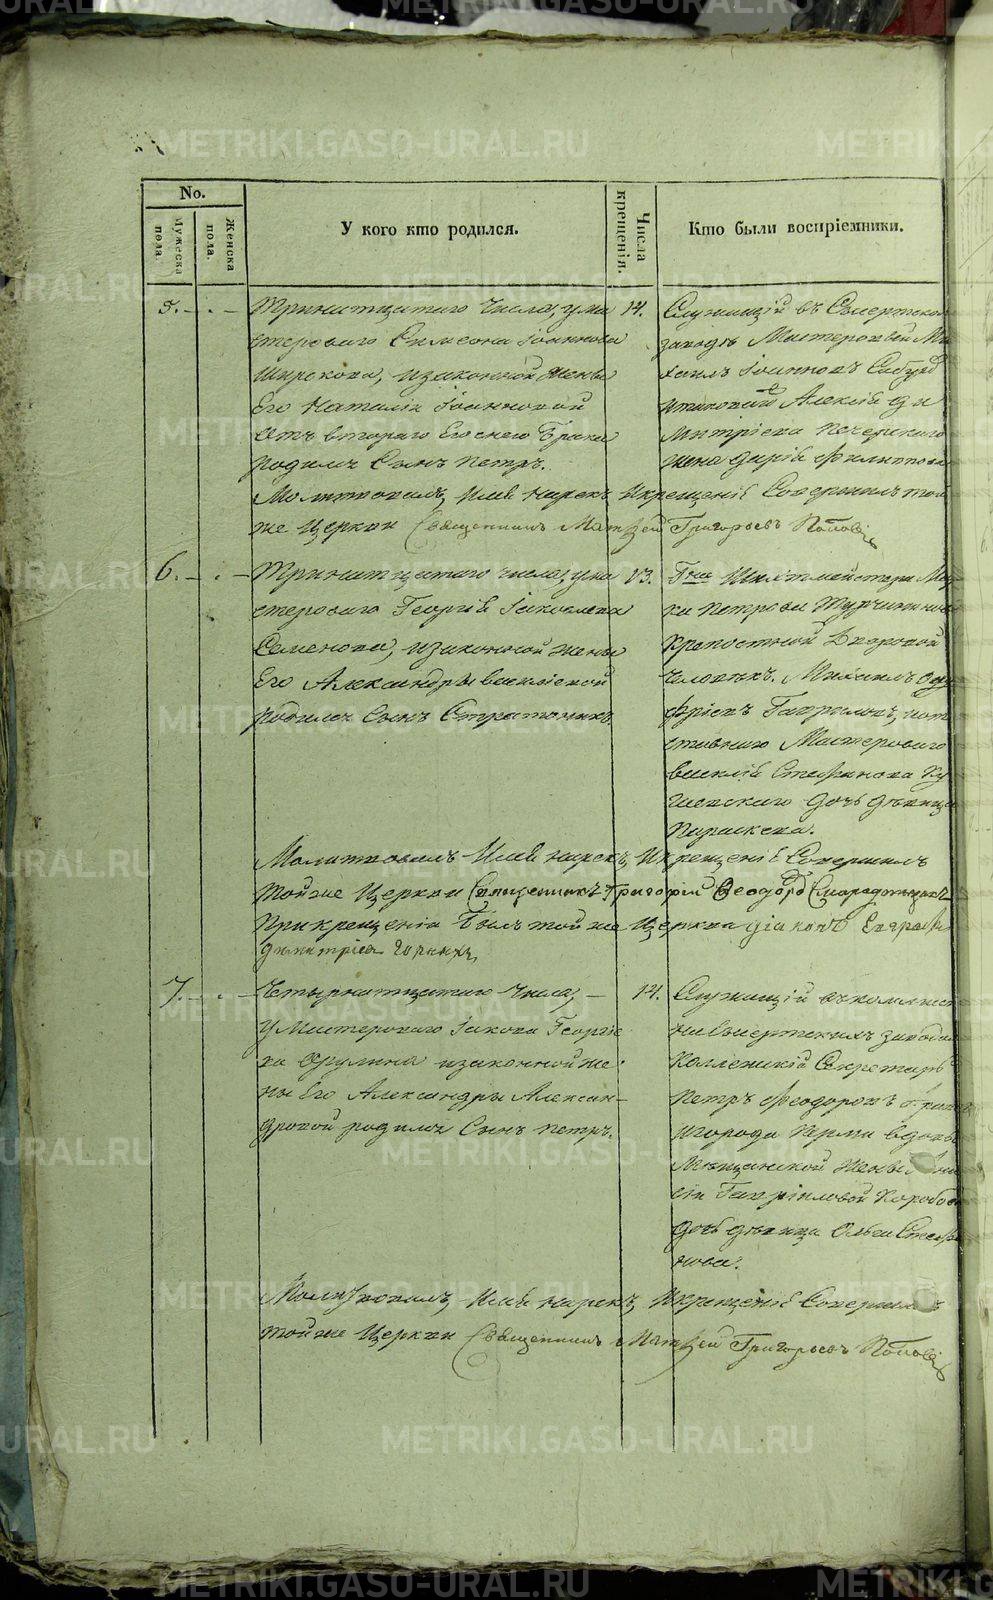 METRIKI.GASO-URAL.RU
No.
Мужеска пола.
Женска пола.
У кого кто родился.
Числа крещенія.
Кто были воспріемники.
5.
Тринатцатаго числа, у ма
стероваго Симеона Іоаннова
Ширскова, изаконной жены
Его Наталіи Іоанновой
Отъ втораго Его снею брака
родился Сынъ Петръ.
14.
Служащій въ Сысертско
заводѣ Мастеровой Ми
хаилъ Іоанновъ
Алексѣй Ди
митріева
жена Дарія Филиппова
Молитвовалъ, Имя нарекъ Икрещеніе Совершилъ той
же Церкви Священникъ Матѳей Григорьевъ Поповъ
6.
Тринатцатаго числа, у ма
стероваго Георгія Іаковлева
Семенова, изаконной жены
Его Александры Василіевой
родился Сынъ Стратоникъ.
13.
Гна Шихтмейстера Мар
ка Петрова Турчанинова
Крепостной Дворовой
человѣкъ Михаилъ
Гавриловъ, и от
ставнаго Мастероваго
Василія Стефанова
дочь дѣвица
Параскева.
Молитвовалъ Имя нарекъ, Икрещеніе Совершилъ
тойже Церкви Священникъ Григорій Ѳеодоровъ
Прикрещеніи Былъ той же Церкви діаконъ
Димитріевъ
7.
Четырнатцатаго числа,
У Мастероваго Іакова Георгіе
ва изаконной же
ны Его Александры Алексан
дровой родился Сынъ Петръ.
14.
Служащій
Сысертскихъ заводовъ
Коллежскій Секретарь
Петръ Феодоровъ
Игорода Перми вдовы
Мещанской жены
Гавріиловой
дочь дѣвица Ольга Стефа
нова.
Молитвовалъ, Имя нарекъ, Икрещеніе Совершилъ
тойже Церкви Священникъ Матѳей Григорьевъ Поповъ